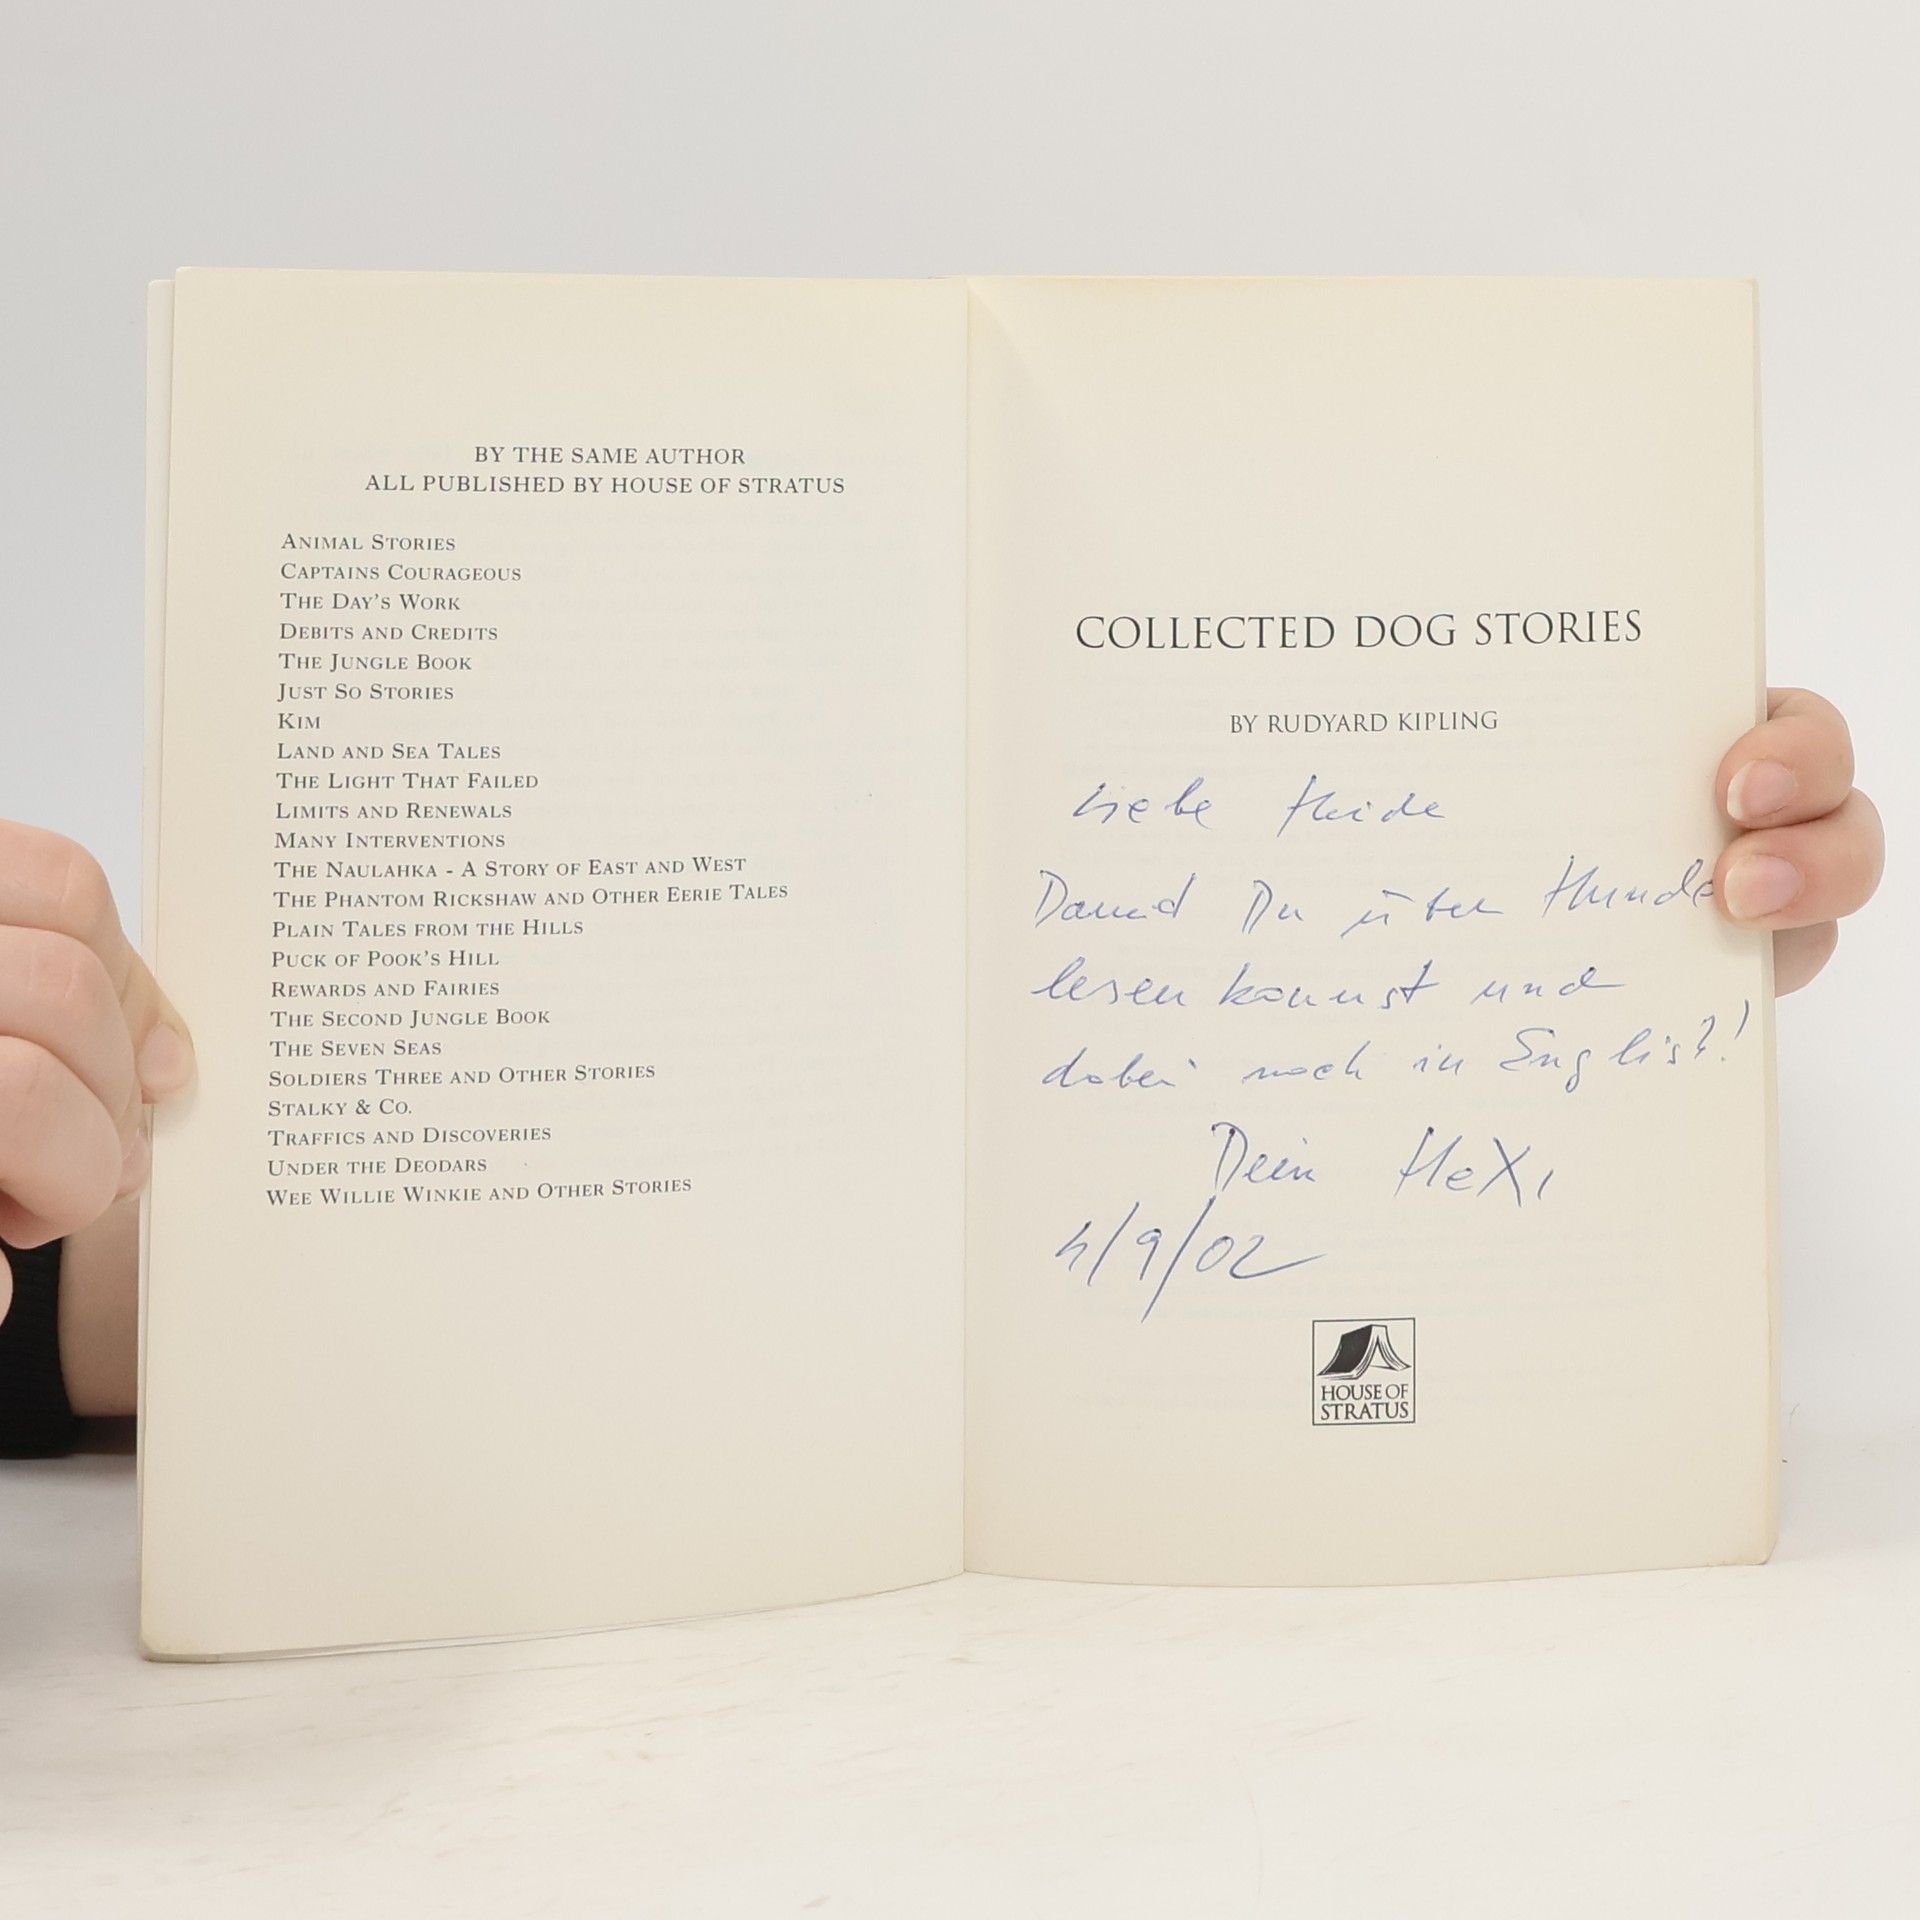 BY THE SAME AUTHOR
ALL PUBLISHED BY HOUSE OF STRATUS
ANIMAL STORIES
CAPTAINS COURAGEOUS
THE DAY'S WORK
DEBITS AND CREDITS
THE JUNGLE BOOK
JUST SO STORIES
KIM
LAND AND SEA TALES
THE LIGHT THAT FAILED
LIMITS AND RENEWALS
MANY INTERVENTIONS
THE NAULAHKA - A STORY OF EAST AND WEST
THE PHANTOM RICKSHAW AND OTHER EERIE TALES
PLAIN TALES FROM THE HILLS
PUCK OF POOK'S HILL
REWARDS AND FAIRIES
THE SECOND JUNGLE BOOK
THE SEVEN SEAS
SOLDIERS THREE AND OTHER STORIES
STALKY & CO.
TRAFFICS AND DISCOVERIES
UNDER THE DEODARS
WEE WILLIE WINKIE AND OTHER STORIES
COLLECTED DOG STORIES
BY RUDYARD KIPLING
Liebe Heide
Damit Du über Hunde
lesen kannst und
dabei noch in English!
Dein HeXi
4/9/02
HOUSE OF
STRATUS